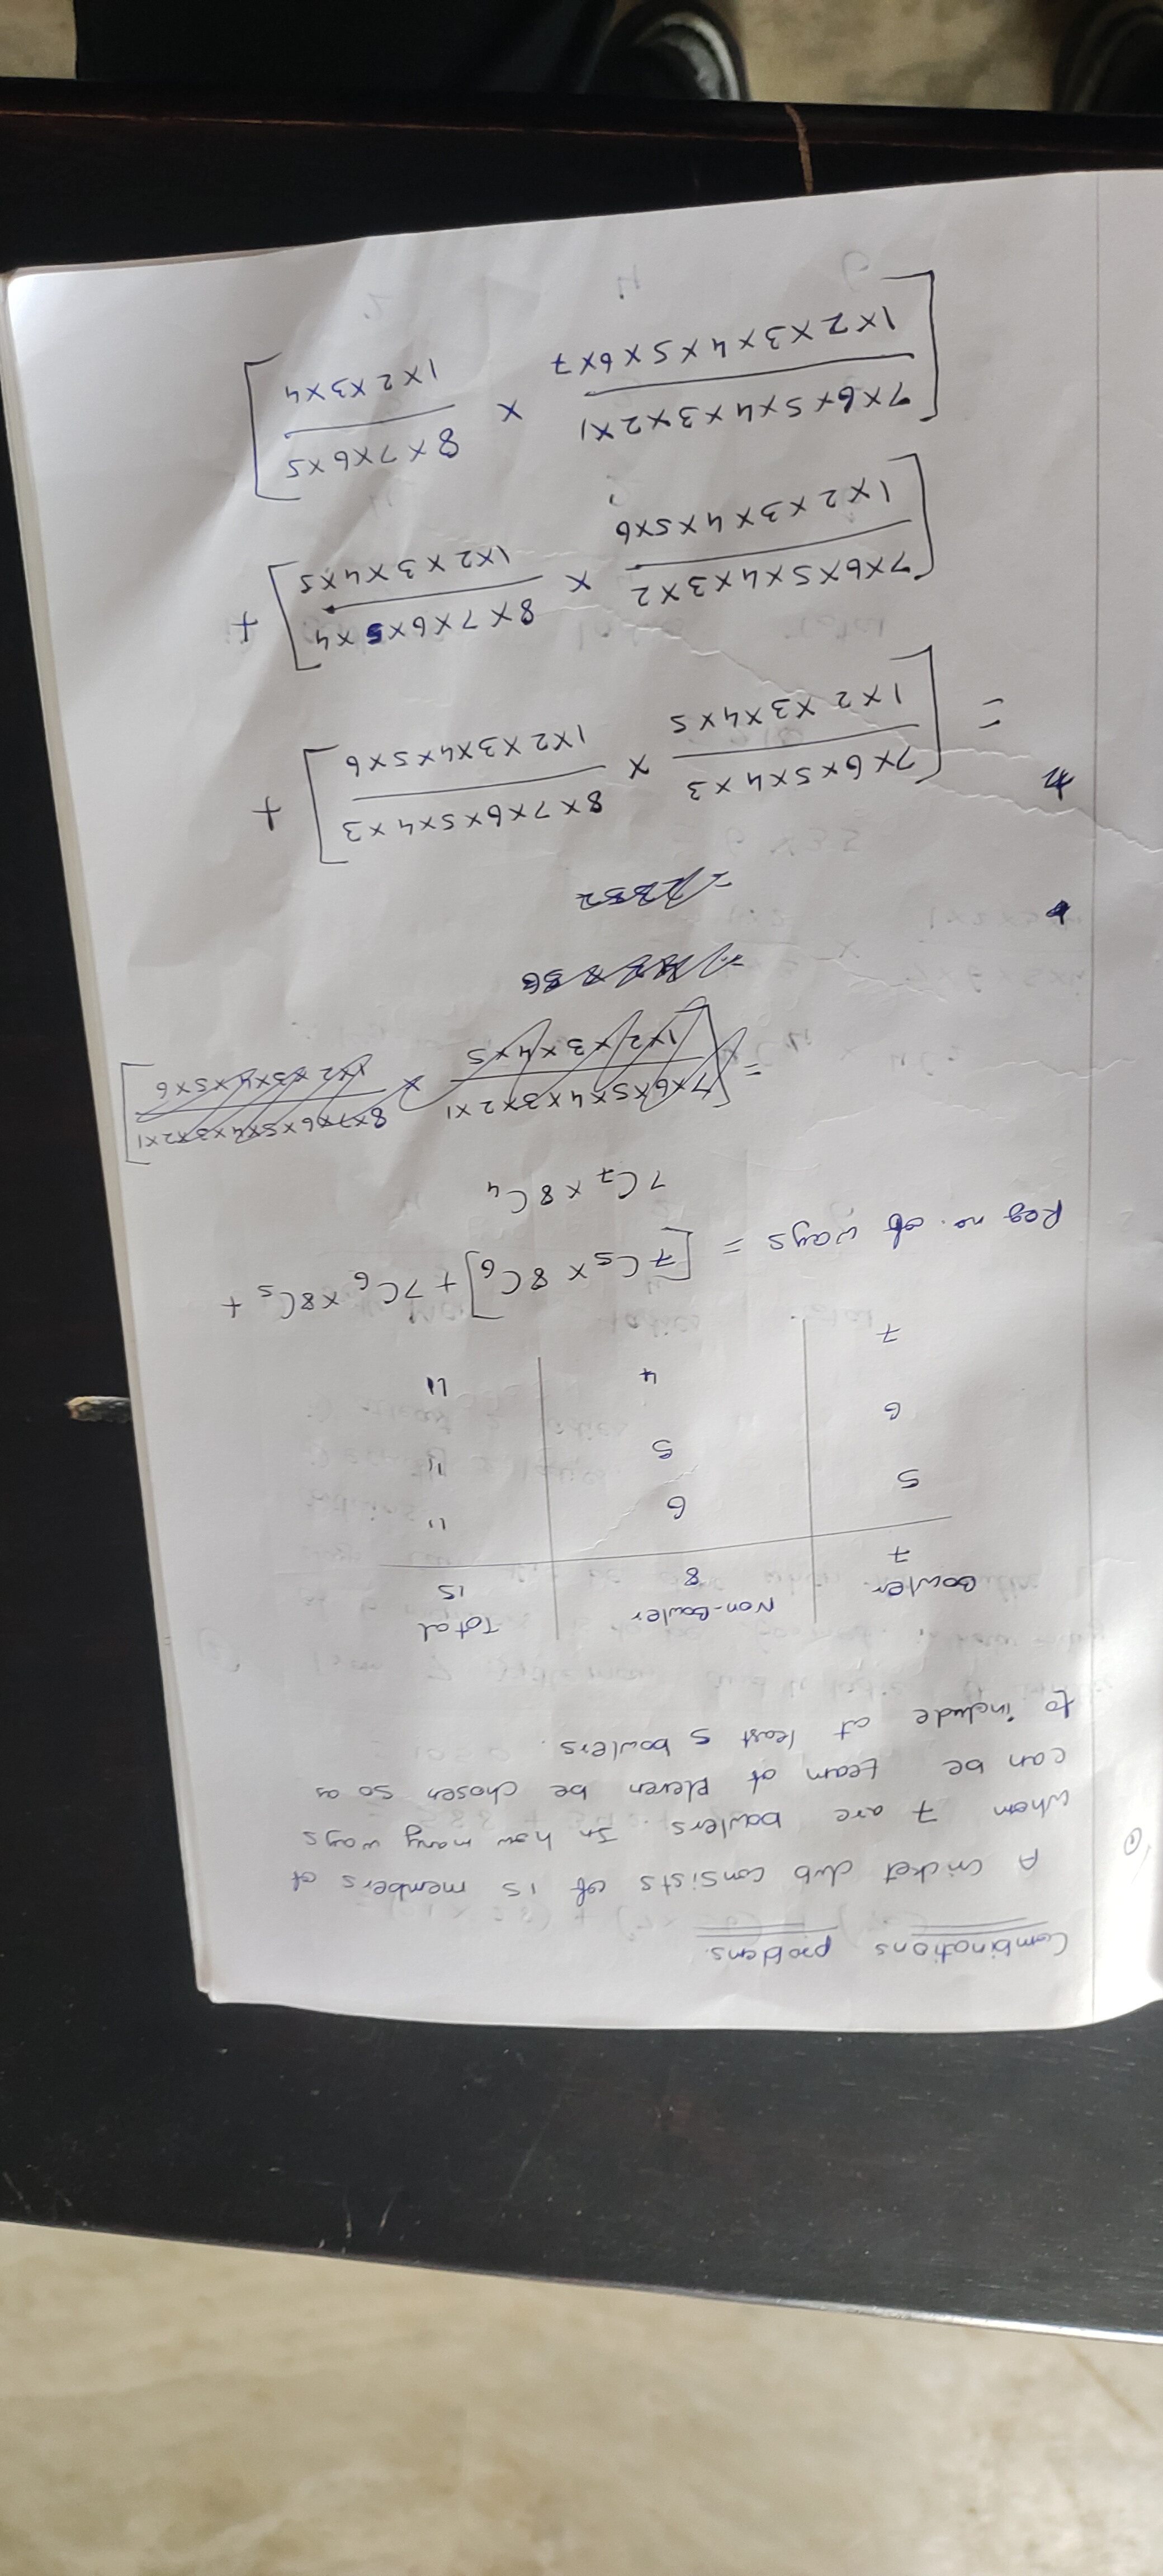 Combinations problems.
1) A cricket club consists of 15 members of
whom 7 are bowlers. In how many ways
can be team of eleven be chosen so as
to include at least 5 bowlers.
Bowler Non-Bowler Total
7 8 15
5 6 11
6 5 11
7 4 11
Req no. of ways = [7C5 × 8C6] + 7C6 × 8C5 +
7C7 × 8C4
= [7×6×5×4×3×2×1 / 1×2×3×4×5 × 8×7×6×5×4×3×2×1 / 1×2×3×4×5×6]
= 2352
= [7×6×5×4×3 / 1×2×3×4×5 × 8×7×6×5×4×3 / 1×2×3×4×5×6] +
[7×6×5×4×3×2 / 1×2×3×4×5×6 × 8×7×6×5×4 / 1×2×3×4×5] +
[7×6×5×4×3×2×1 / 1×2×3×4×5×6×7 × 8×7×6×5 / 1×2×3×4]